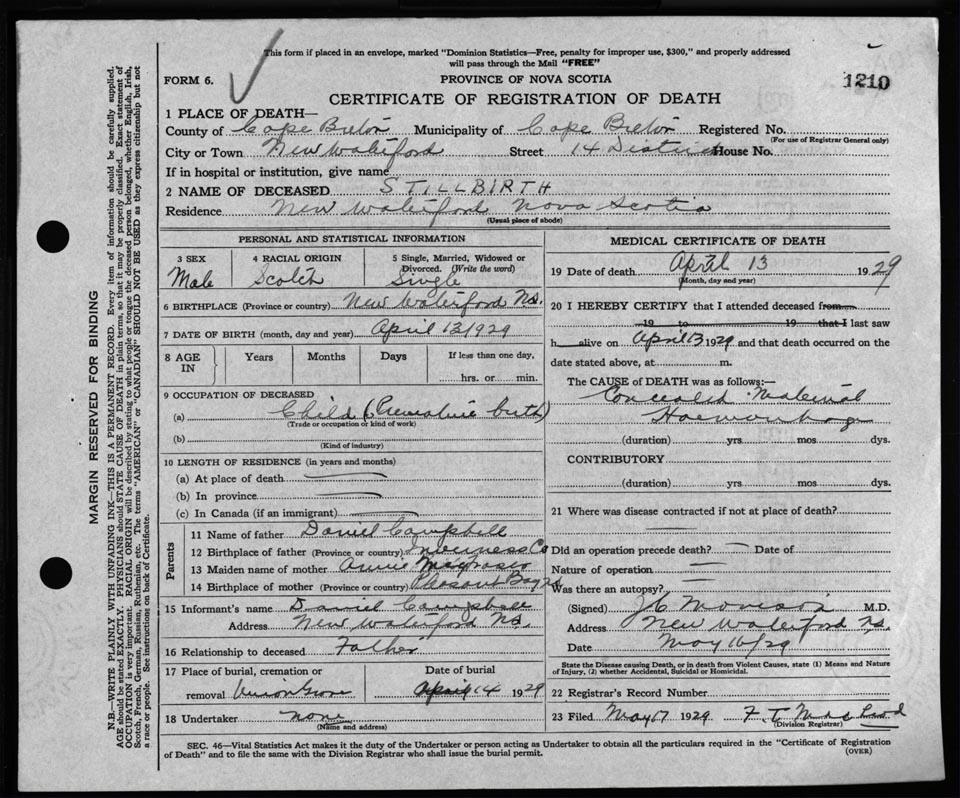 This form if placed in an envelope, marked "Dominion Statistics—Free, penalty for improper use, $300," and properly addressed
will pass through the Mail "FREE"
FORM 6.
PROVINCE OF NOVA SCOTIA
1210
CERTIFICATE OF REGISTRATION OF DEATH
1 PLACE OF DEATH—
County of Cape Breton Municipality of Cape Breton Registered No.
(For use of Registrar General only)
City or Town New Waterford Street 14 District House No.
If in hospital or institution, give name
2 NAME OF DECEASED STILLBIRTH
Residence New Waterford Nova Scotia
(Usual place of abode)
PERSONAL AND STATISTICAL INFORMATION
3 SEX
Male
4 RACIAL ORIGIN
Scotch
5 Single, Married, Widowed or
Divorced. (Write the word)
Single
6 BIRTHPLACE (Province or country) New Waterford N.S.
7 DATE OF BIRTH (month, day and year) April 13/1929
8 AGE IN Years Months Days If less than one day,
hrs. or min.
9 OCCUPATION OF DECEASED
(a) Child (Premature birth)
(Trade or occupation or kind of work)
(b)
(Kind of industry)
10 LENGTH OF RESIDENCE (in years and months)
(a) At place of death
(b) In province
(c) In Canada (if an immigrant)
Parents
11 Name of father Daniel Campbell
12 Birthplace of father (Province or country) Inverness Co
13 Maiden name of mother Annie
14 Birthplace of mother (Province or country) Pleasant Bay N.S.
15 Informant's name Daniel Campbell
Address New Waterford N.S.
16 Relationship to deceased Father
17 Place of burial, cremation or Date of burial
removal Union Grove April 14 1929
18 Undertaker none
(Name and address)
MEDICAL CERTIFICATE OF DEATH
19 Date of death April 13 1929
(Month, day and year)
20 I HEREBY CERTIFY that I attended deceased from
19 to 19 that I last saw
h alive on April 13 1929 and that death occurred on the
date stated above, at m.
The CAUSE of DEATH was as follows:—
Concealed Maternal
Haemorrhage
(duration) yrs mos dys.
CONTRIBUTORY
(duration) yrs. mos. dys.
21 Where was disease contracted if not at place of death?
Did an operation precede death? Date of
Nature of operation
Was there an autopsy?
(Signed) M.D.
Address New Waterford N.S.
Date May 16/29
State the Disease causing Death, or in death from Violent Causes, state (1) Means and Nature
of Injury, and (2) whether Accidental, Suicidal or Homicidal.
22 Registrar's Record Number
23 Filed May 17 1929
(Division Registrar)
SEC. 46—Vital Statistics Act makes it the duty of the Undertaker or person acting as Undertaker to obtain all the particulars required in the "Certificate of Registration
of Death" and to file the same with the Division Registrar who shall issue the burial permit.
(OVER)
MARGIN RESERVED FOR BINDING
N.B.—WRITE PLAINLY WITH UNFADING INK—THIS IS A PERMANENT RECORD. Every item of information should be carefully supplied.
AGE should be stated EXACTLY. PHYSICIANS should STATE CAUSE OF DEATH in plain terms, so that it may be properly classified. Exact statement of
OCCUPATION is very important. RACIAL ORIGIN will be described by stating to what people or race the deceased person belonged, whether English, Irish,
Scotch, French, German, Russian, Ruthenian, etc. The terms "AMERICAN" or "CANADIAN SHOULD NOT BE USED as they express citizenship but not
a race or people. See instructions on back of Certificate.